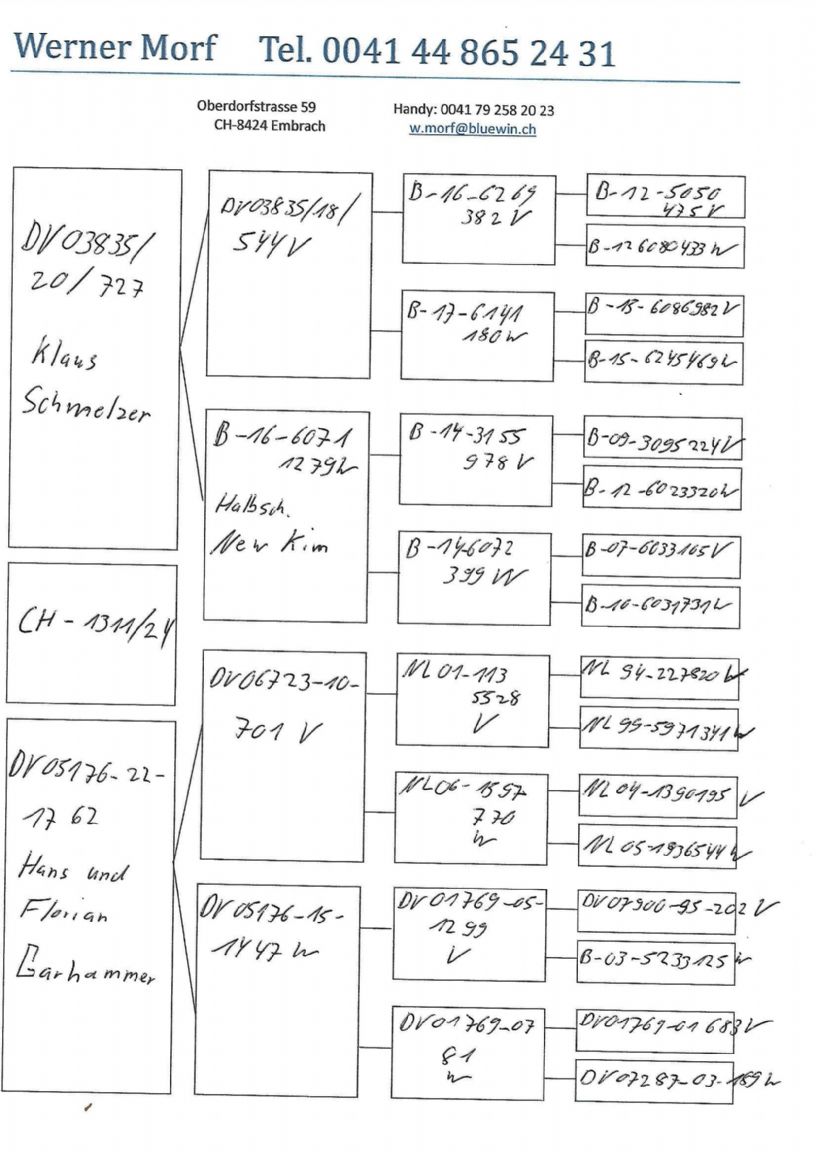 Werner Morf Tel. 0041 44 865 24 31
Oberdorfstrasse 59
CH-8424 Embrach
Handy: 0041 79 258 20 23
w.morf@bluewin.ch
DV03835/
20/727
Klaus
Schmelzer
DV03835/18/
544V
B-16-6269
382V
B-12-5050
475V
B-126080433W
B-17-6141
180W
B-13-6086982V
B-15-6245469W
B-16-6071
1279W
Halbsch.
New Kim
B-14-3155
978V
B-09-3095224V
B-12-6023320W
B-14-6072
399W
B-07-6033165V
B-10-6031731W
CH-1311/24
DV05176-22-
1762
Hans und
Florian
Garhammer
DV06723-10-
701 V
NL01-113
5528
V
NL 94-227820W
NL 99-5971341W
NL06-1597
770
W
NL04-1390195 V
NL05-1936544W
DV05176-15-
1447 W
DV01769-05-
1299
V
DV07900-95-202 V
B-03-5233125W
DV01769-07
81
W
DV01769-01 683V
DV07287-03-189W